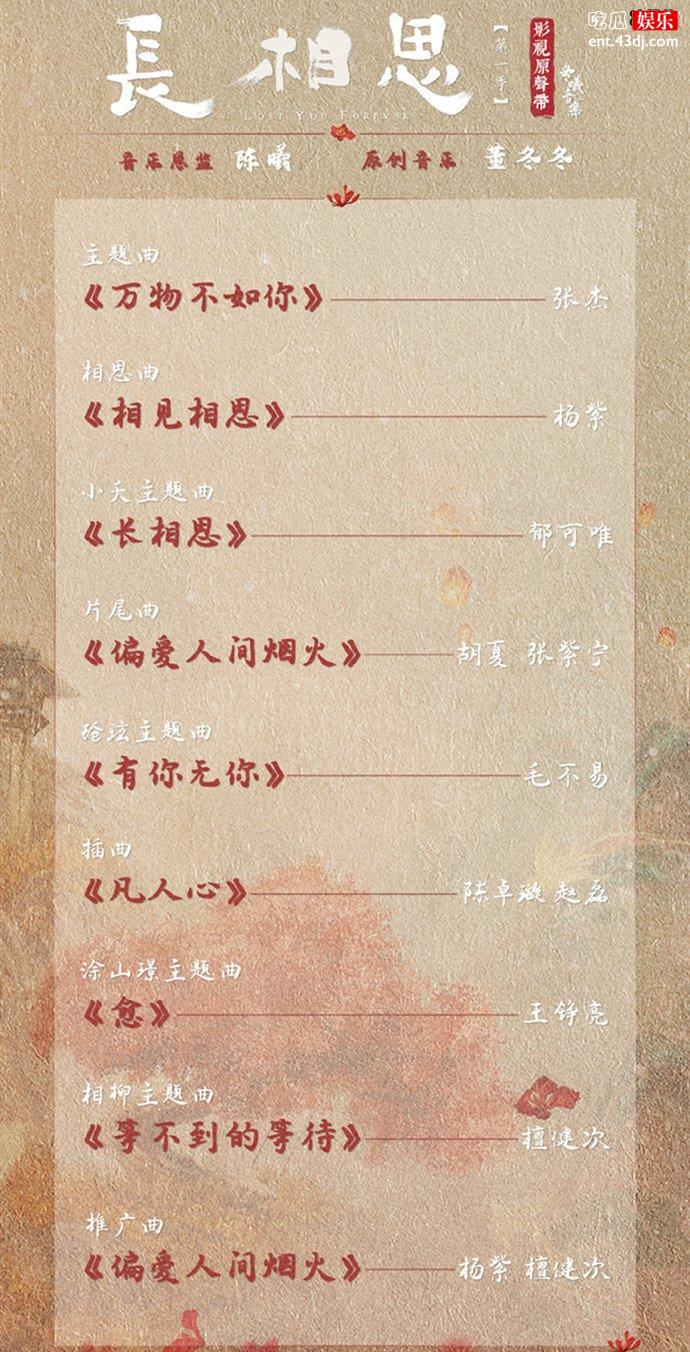 吃瓜 娱乐
ent.43dj.com
長相思
【第一季】
影視原聲帶
LOST YOU FOREVER
音乐总监 陈曦 原创音乐 董冬冬
主题曲
《万物不如你》 张杰
相思曲
《相见相思》 杨紫
小夭主题曲
《长相思》 郁可唯
片尾曲
《偏爱人间烟火》 胡夏 张紫宁
玱玹主题曲
《有你无你》 毛不易
插曲
《凡人心》 陈卓璇 赵磊
涂山璟主题曲
《愈》 王铮亮
相柳主题曲
《等不到的等待》 檀健次
推广曲
《偏爱人间烟火》 杨紫 檀健次